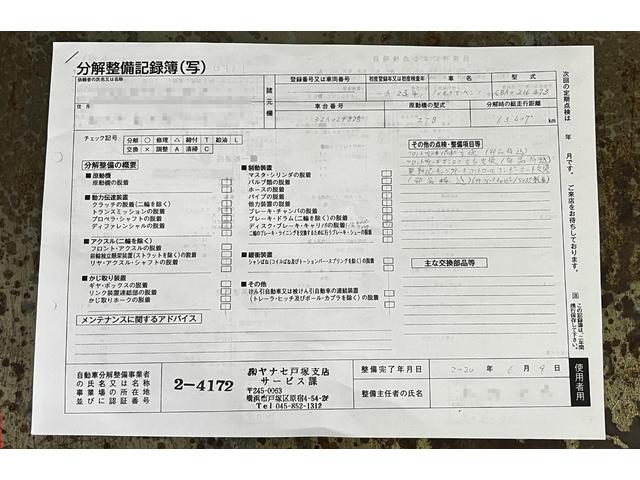 分解整備記録簿(写)
依頼者の氏名又は名称
住所
諸元欄
登録番号又は車両番号
初度登録年又は初度検査年
車名
型式
車台番号
原動機の型式
分解時の総走行距離
278
km
チェック記号
分解 ○ 修理 △ 締付 T 給油 L
交換 × 調整 A 清掃 C
分解整備の概要
■原動機
原動機の脱着
■動力伝達装置
クラッチの脱着(二輪を除く)
トランスミッションの脱着
プロペラ・シャフトの脱着
ディファレンシャルの脱着
■アクスル(二輪を除く)
フロント・アクスルの脱着
前輪独立懸架装置(ストラットを除く)の脱着
リヤ・アクスル・シャフトの脱着
■かじ取り装置
ギヤ・ボックスの脱着
リンク装置連結部の脱着
かじ取りホークの脱着
■制動装置
マスタ・シリンダの脱着
バルブ類の脱着
ホースの脱着
パイプの脱着
倍力装置の脱着
ブレーキ・チャンバの脱着
ブレーキ・ドラム(二輪を除く)の脱着
ディスク・ブレーキ・キャリパの脱着
二輪のブレーキ・ライニングを交換するために行うブレーキ・シューの脱着
■緩衝装置
シャシばね(コイルばね及びトーションバー・スプリングを除く)の脱着
■その他
けん引自動車又は被けん引自動車の連結装置
(トレーラ・ヒッチ及びボール・カプラを除く)の脱着
その他の点検・整備項目等
主な交換部品等
メンテナンスに関するアドバイス
次回の定期点検は 年 月です。ご来店をお待ちしております。
この記録簿は、二年間携行保存して下さい。
使用者用
自動車分解整備事業者
の氏名又は名称
事業場の所在地
並びに認証番号
2-4172
㈱ヤナセ戸塚支店
サービス課
〒245-0063
横浜市戸塚区原宿4-54-2
Tel 045-852-1312
整備完了年月日
2020 年 6 月 9 日
整備主任者の氏名